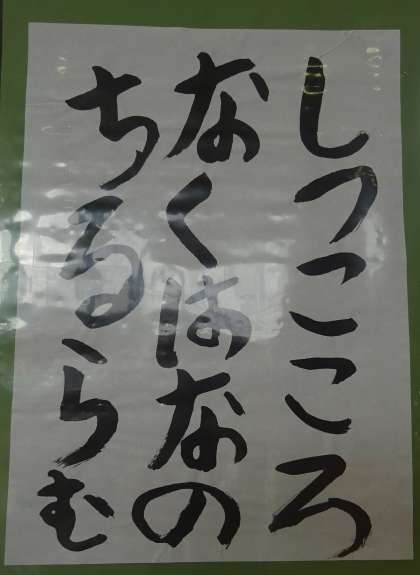 しつこころ
なくはなの
ちるらむ